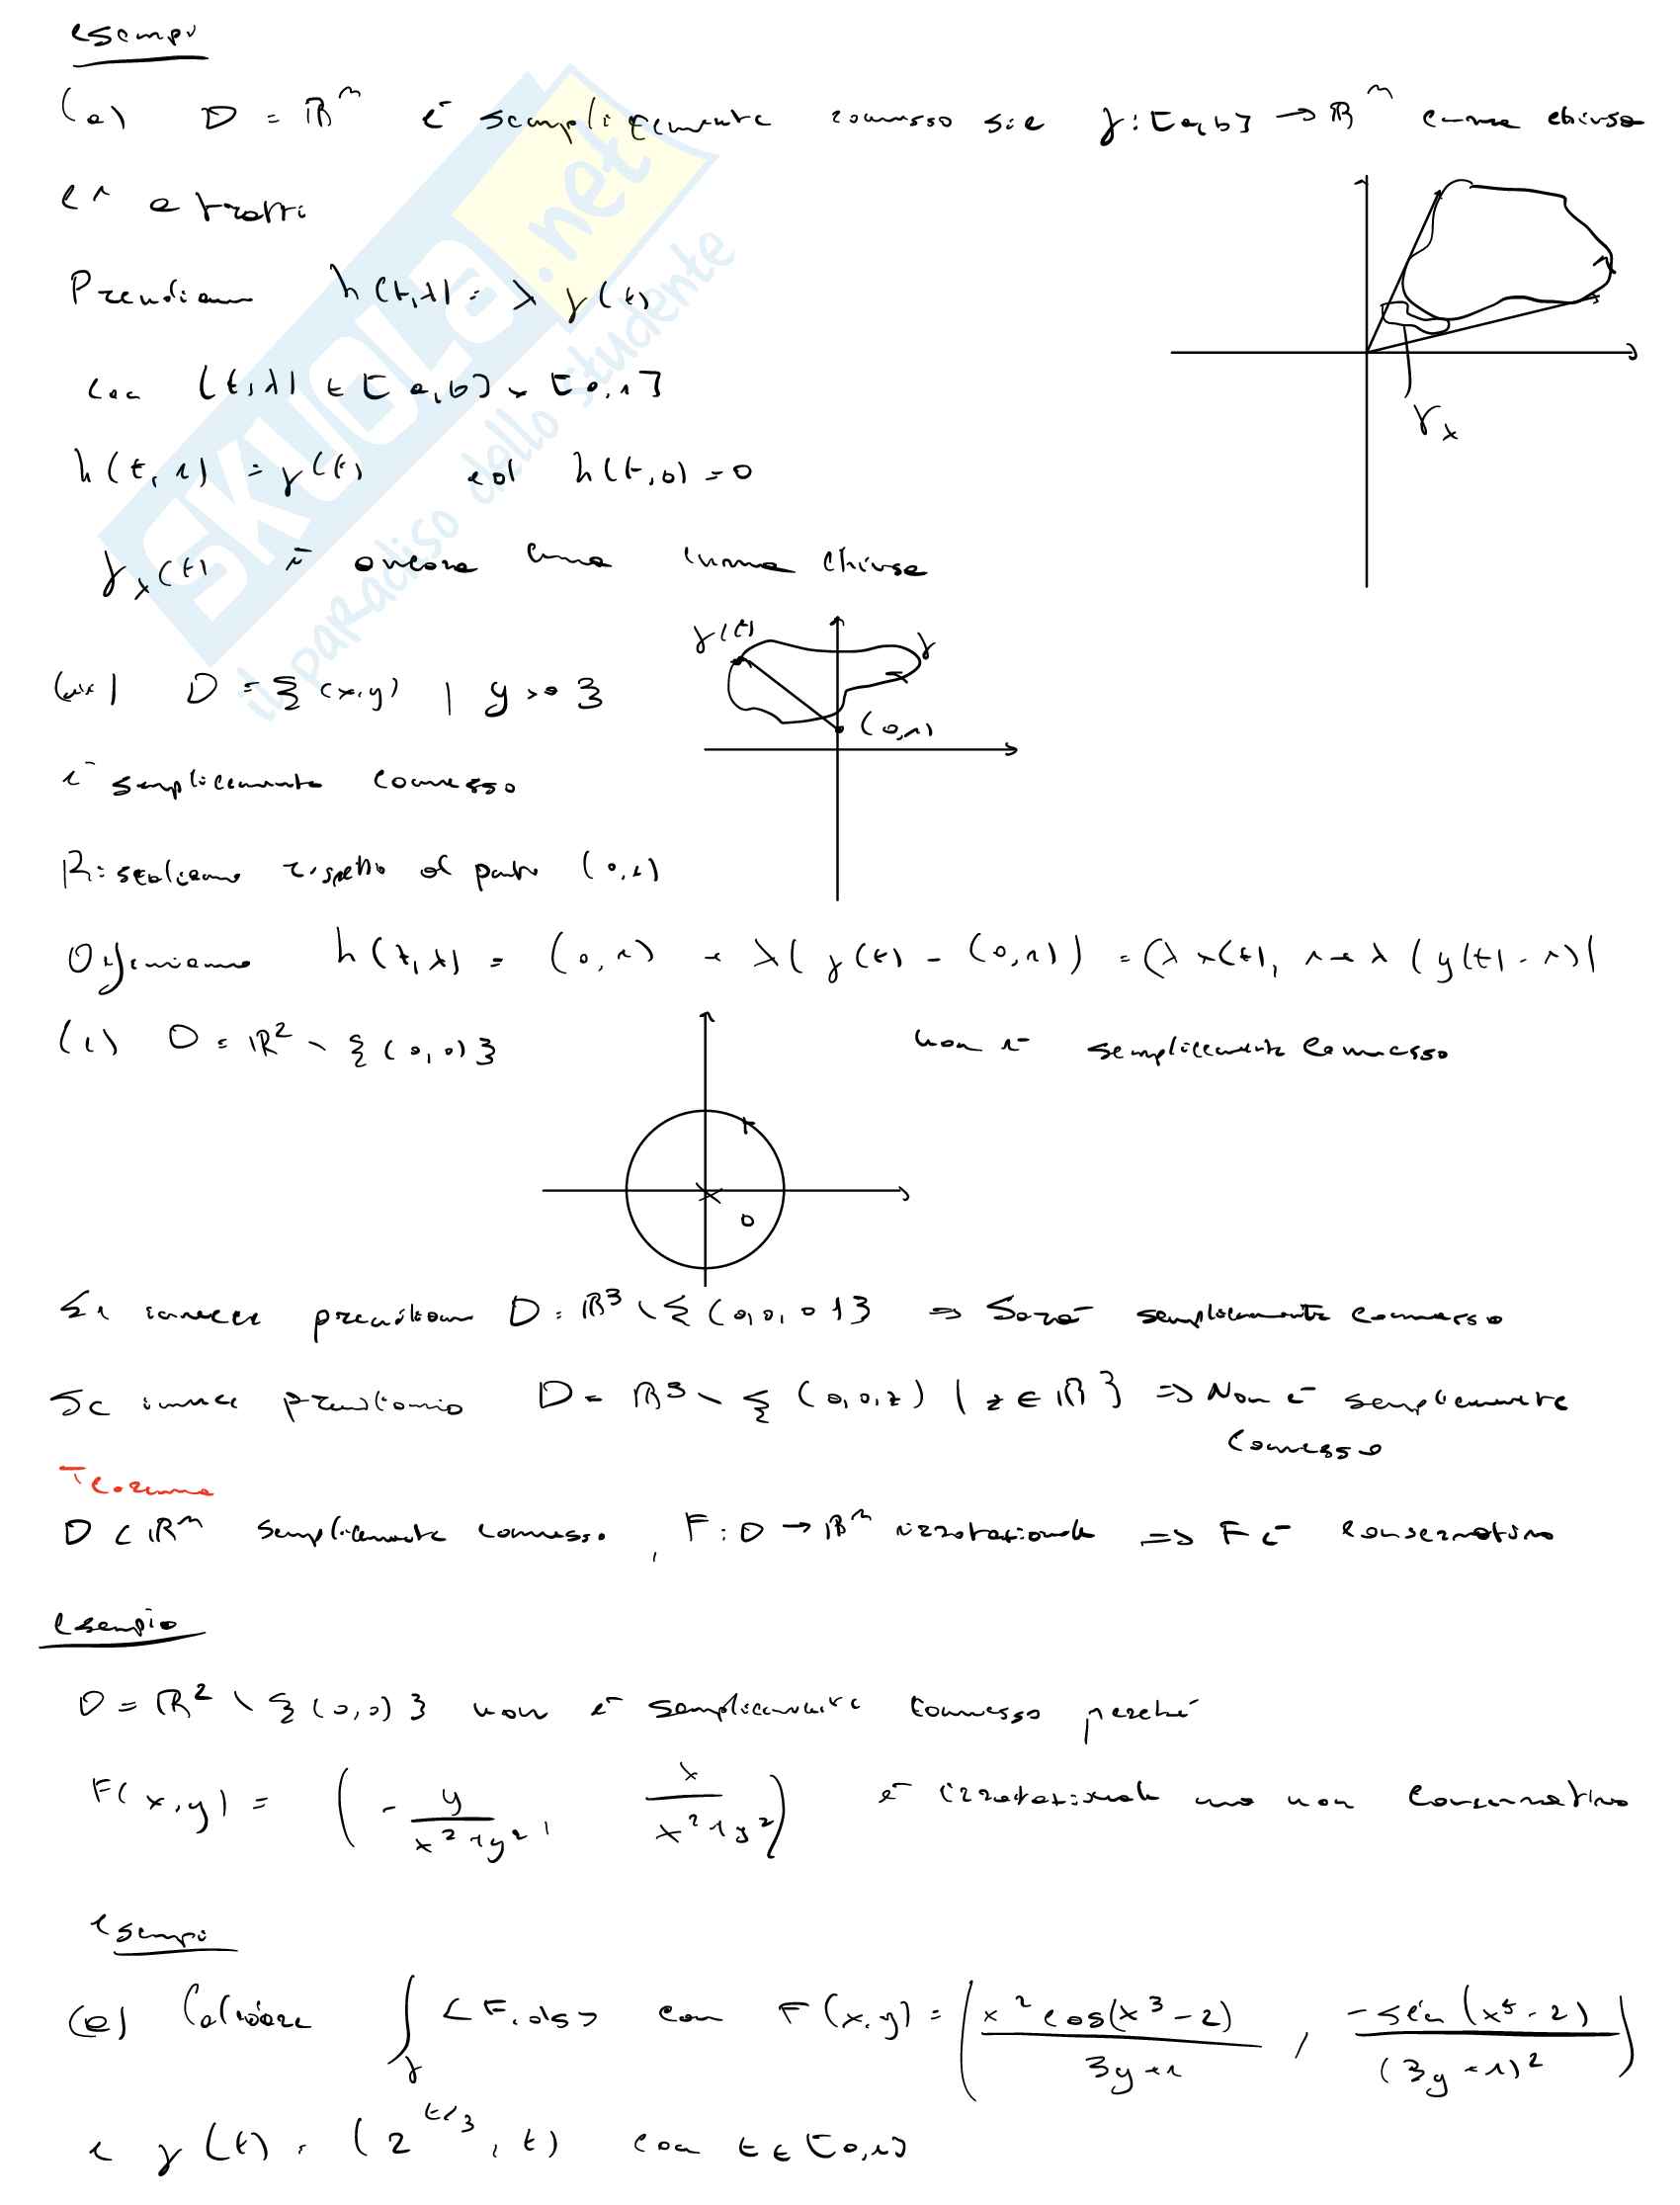 esempi
(a) D = ℝⁿ è semplicemente connesso sia γ:[a,b] → ℝⁿ curva chiusa
C¹ a tratti
Prendiamo h(t,λ) = λ γ(t)
con (t,λ) ∈ [a,b] × [0,1]
h(t,1) = γ(t) ed h(t,0) = 0
γλ(t) è ancora una curva chiusa
γλ
D = {(x,y) | y > 0}
γ(t) γ
(0,1)
è semplicemente connesso
Riscaliamo rispetto al punto (0,1)
Otteniamo h(t,λ) = (0,1) + λ(γ(t) - (0,1)) = (λx(t), 1+λ(y(t)-1)
(c) D = ℝ² \ {(0,0)} non è semplicemente connesso
0
Se invece prendiamo D = ℝ³ \ {(0,0,0)} => Sarà semplicemente connesso
Se invece prendiamo D = ℝ³ \ {(0,0,z) | z ∈ ℝ} => Non è semplicemente
connesso
Teorema
D ⊂ ℝⁿ semplicemente connesso, F: D → ℝⁿ irrotazionale => F è conservativo
esempio
D = ℝ² \ {(0,0)} non è semplicemente connesso perché
F(x,y) = (- y/(x²+y²), x/(x²+y²)) è irrotazionale ma non conservativo
esempi
(a) Calcolare ∫γ <F,ds> con F(x,y) = (x² cos(x³-2)/(3y+1), -sin(x³-2)/(3y+1)²)
e γ(t) = (2^(t/3), t) con t ∈ [0,1]
SKUOLA.net
il paradiso dello studente